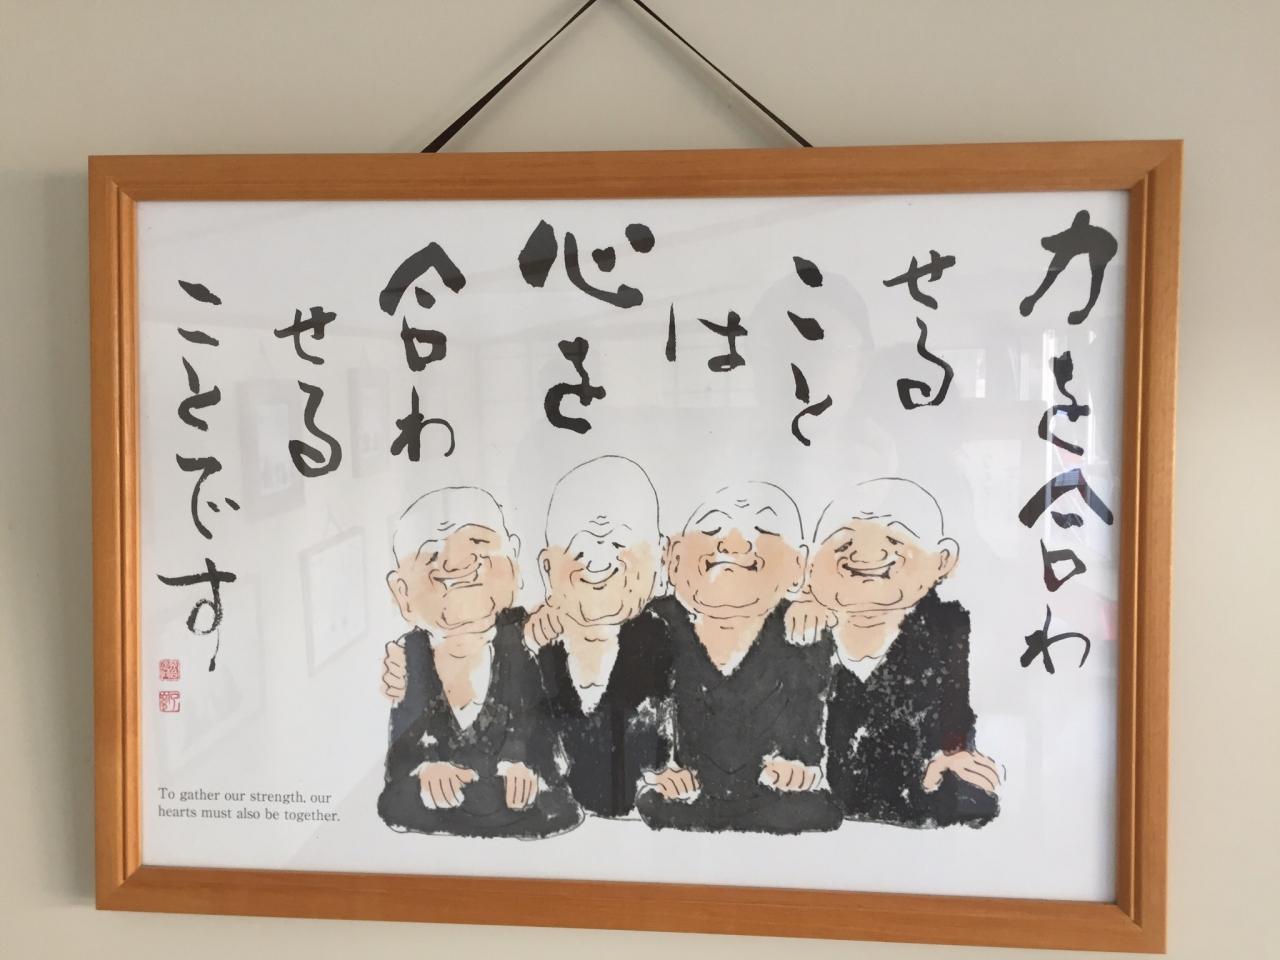 力を合わ
せる
こと
は
心を
合わ
せる
ことです
To gather our strength, our
hearts must also be together.